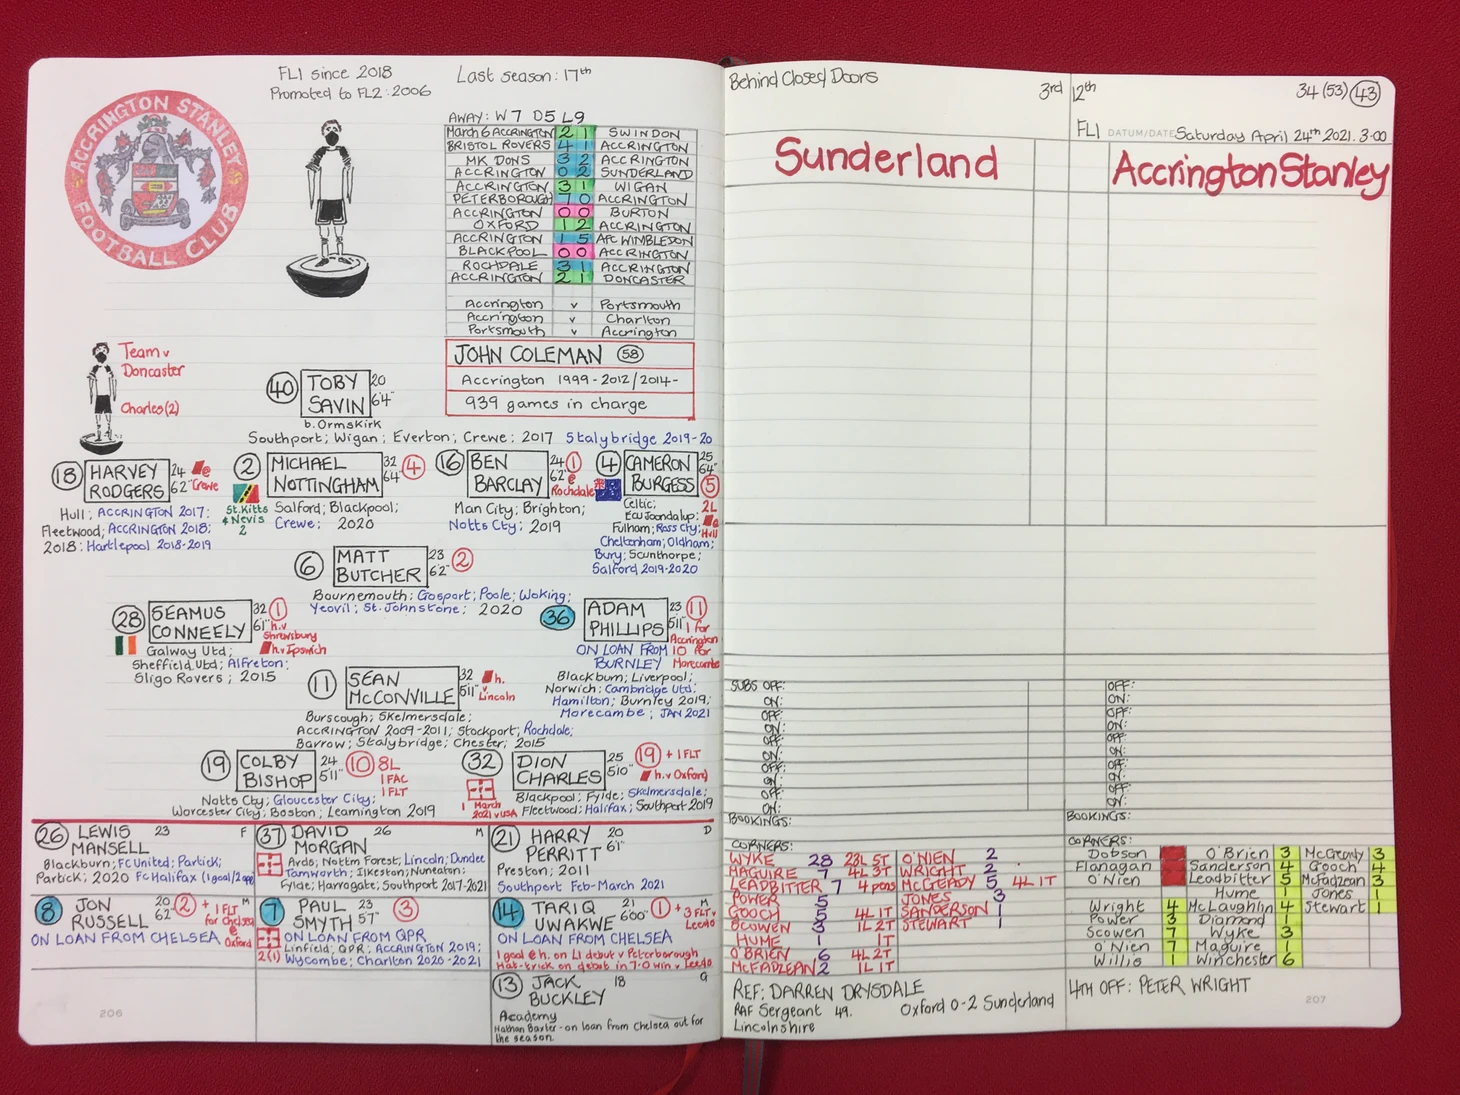 ACCRINGTON STANLEY
FOOTBALL CLUB
FL1 since 2018
Promoted to FL2: 2006
Last season: 17th
AWAY: W7 D5 L9
March 6 ACCRINGTON 2 1 SWINDON
BRISTOL ROVERS 4 1 ACCRINGTON
MK DONS 3 2 ACCRINGTON
ACCRINGTON 0 2 SUNDERLAND
ACCRINGTON 3 1 WIGAN
PETERBOROUGH 7 0 ACCRINGTON
ACCRINGTON 0 0 BURTON
OXFORD 1 2 ACCRINGTON
ACCRINGTON 1 5 AFC WIMBLEDON
BLACKPOOL 0 0 ACCRINGTON
ROCHDALE 3 1 ACCRINGTON
ACCRINGTON 2 1 DONCASTER
Accrington v Portsmouth
Accrington v Charlton
Portsmouth v Accrington
JOHN COLEMAN 58
Accrington 1999-2012/2014-
939 games in charge
Team v
Doncaster
Charles (2)
40 TOBY SAVIN 20 6'4"
b. Ormskirk
Southport; Wigan; Everton; Crewe: 2017 Stalybridge 2019-20
18 HARVEY RODGERS 24 6'2" @ Crewe
Hull; ACCRINGTON 2017;
Fleetwood; ACCRINGTON 2018;
2018: Hartlepool 2018-2019
2 MICHAEL NOTTINGHAM 32 6'4" 4
St. Kitts & Nevis 2
Salford; Blackpool;
Crewe; 2020
16 BEN BARCLAY 24 6'2" 1 @ Rochdale
Man City; Brighton;
Notts Cty; 2019
4 CAMERON BURGESS 25 6'4" 5
2L
@ Hull
Celtic;
ECU Joondalup;
Fulham; Ross Cty;
Cheltenham; Oldham;
Bury; Scunthorpe;
Salford 2019-2020
6 MATT BUTCHER 23 6'2" 2
Bournemouth; Gosport; Poole; Woking;
Yeovil; St. Johnstone; 2020
28 SEAMUS CONNEELY 32 6'1" 1 h.v Shrewsbury
h.v Ipswich
Galway Utd;
Sheffield Utd; Alfreton;
Sligo Rovers; 2015
36 ADAM PHILLIPS 23 5'11" 11
1 for Accrington
10 for Morecambe
ON LOAN FROM
BURNLEY
Blackburn; Liverpool;
Norwich; Cambridge Utd;
Hamilton; Burnley 2019;
Morecambe; JAN 2021
11 SEAN McCONVILLE 32 5'11" h. v Lincoln
Burscough; Skelmersdale;
ACCRINGTON 2009-2011; Stockport; Rochdale;
Barrow; Stalybridge; Chester; 2015
19 COLBY BISHOP 24 5'11" 10 8L
1 FAC
1 FLT
Notts Cty; Gloucester City;
Worcester City; Boston; Leamington 2019
32 DION CHARLES 25 5'10" 19 + 1 FLT
h.v Oxford
1 March 2021 v USA
Blackpool; Fylde; Skelmersdale;
Fleetwood; Halifax; Southport 2019
26 LEWIS MANSELL 23 F
Blackburn; FC United; Partick;
Partick; 2020 FC Halifax (1 goal/2 app
37 DAVID MORGAN 26 M
Ards; Nottm Forest; Lincoln; Dundee
Tamworth; Ilkeston; Nuneaton;
Fylde; Harrogate; Southport 2017-2021
21 HARRY PERRITT 20 6'1" D
Preston; 2011
Southport Feb-March 2021
8 JON RUSSELL 20 6'2" 2 + 1 FLT for Chelsea @ Oxford M
ON LOAN FROM CHELSEA
7 PAUL SMYTH 23 5'7" 3
2 (1)
ON LOAN FROM QPR
Linfield; QPR; ACCRINGTON 2019;
Wycombe; Charlton 2020-2021
14 TARIQ UWAKWE 21 6'00" 1 + 3 FLT v Leeds M
ON LOAN FROM CHELSEA
1 goal @ h. on L1 debut v Peterborough
Hat-trick on debut in 7-0 win v Leeds
13 JACK BUCKLEY 18 G
Academy
Nathan Baxter - on loan from Chelsea out for
the season.
206
Behind Closed Doors
3rd 12th 34 (53) 43
FL1 DATUM/DATE Saturday April 24th 2021. 3:00
Sunderland
Accrington Stanley
SUBS OFF: OFF:
ON: ON:
OFF: OFF:
ON: ON:
OFF: OFF:
ON: ON:
OFF: OFF:
ON: ON:
OFF: OFF:
ON: ON:
BOOKINGS: BOOKINGS:
CORNERS: CORNERS:
WYKE 28 23L 5T O'NIEN 2
MAGUIRE 7 4L 3T WRIGHT 2
LEADBITTER 7 4 pens McGEADY 5 4L 1T
POWER 5 JONES 3
GOOCH 5 4L 1T SANDERSON 1
SCOWEN 3 1L 2T STEWART 1
HUME 1 1T
O'BRIEN 6 4L 2T
McFADZEAN 2 1L 1T
Dobson O'Brien 3 McGeady 3
Flanagan Sanderson 4 Gooch 4
O'Nien Leadbitter 5 McFadzean 3
Hume 1 Jones 1
Wright 4 McLaughlin 4 Stewart 1
Power 3 Diamond 1
Scowen 7 Wyke 3
O'Nien 7 Maguire 1
Willis 1 Winchester 6
REF: DARREN DRYSDALE
RAF Sergeant 49. Oxford 0-2 Sunderland
Lincolnshire
4TH OFF: PETER WRIGHT
207